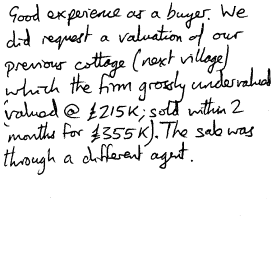 Good experience as a buyer. We
did request a valuation of our
previous cottage (next village)
which the firm grossly undervalued
(valued @ £215K; sold within 2
months for £355K). The sale was
through a different agent.